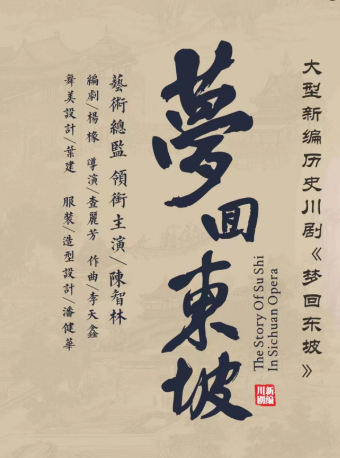 大型新编历史川剧《梦回东坡》
The Story Of Su Shi
In Sichuan Opera
新编
川剧
夢回東坡
藝術總監 領銜主演/陳智林
編劇/楊椽 導演/查麗芳 作曲/李天鑫
舞美設計/葉建 服裝/造型設計/潘健華